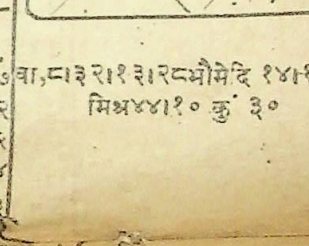 वा,८।३२।१३।२८भौमेदि १४।१
मिश्र४४।१० कुं ३०